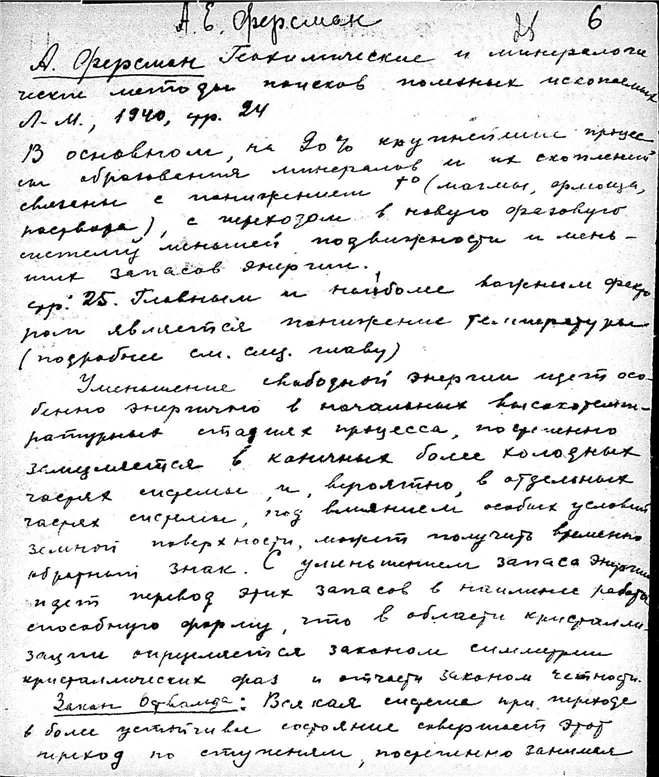 А. Е. Ферсман
25 6
А. Ферсман Геохимические и минералоги
ческие методы поисков полезных ископаемых
Л.-М., 1940, стр. 24
В основном, на 90% крупнейшие процес
сы образования минералов и их скоплений
связаны с понижением t° (магмы, ореола,
раствора), с переходом в новую фазовую
систему меньшей подвижности и мень-
ших запасов энергии.
стр. 25. Главным и наиболее важным факто
ром является понижение температуры
(подробнее см. спец. главу)
Уменьшение свободной энергии идет осо-
бенно энергично в начальных высокотемпе-
ратурных стадиях процесса, постепенно
замедляется в конечных более холодных
частях системы и, вероятно, в отдельных
частях системы, под влиянием особых условий
земной поверхности, может получить временно
обратный знак. С уменьшением запаса энергии
идет перевод этих запасов в наименее работо
способную форму, что в области кристалли-
зации определяется законом симметрии
кристаллических фаз и отчасти законом четности.
Закон Оствальда: Всякая система при переходе
в более устойчивое состояние совершает этот
переход по ступеням, постепенно занимая